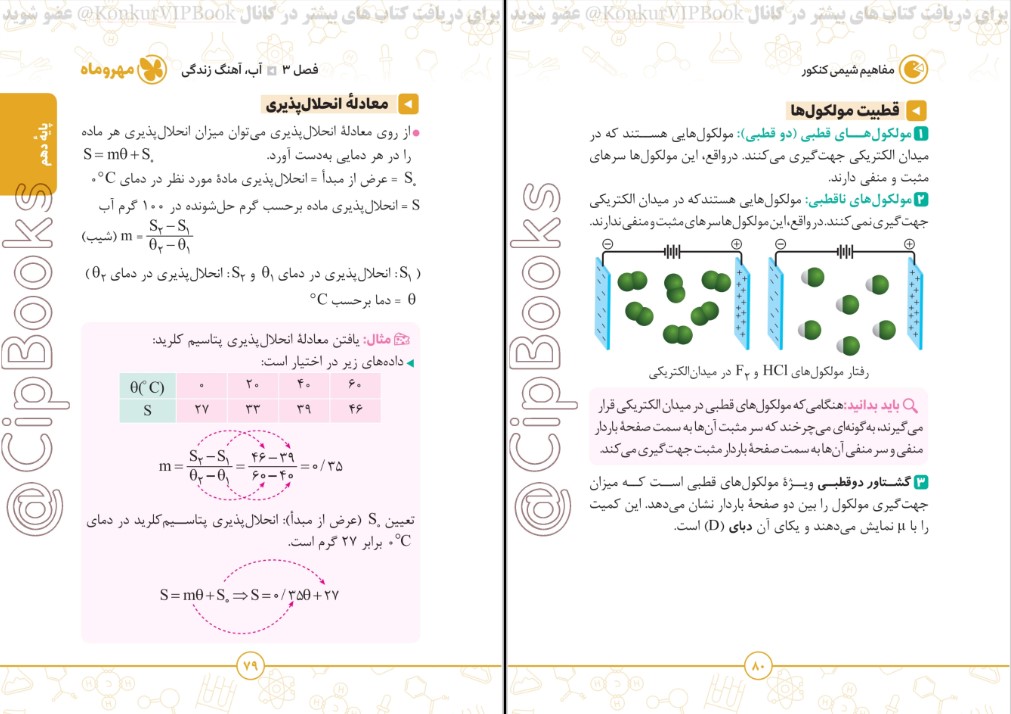 برای دریافت کتاب های بیشتر در کانال KonkurVIPBook@ عضو شوید
مهروماه
فصل ۳ آب، آهنگ زندگی
پایهٔ دهم
معادلهٔ انحلال‌پذیری
از روی معادلهٔ انحلال‌پذیری می‌توان میزان انحلال‌پذیری هر ماده
را در هر دمایی به‌دست آورد. S = mθ + S₀
S₀ = عرض از مبدأ = انحلال‌پذیری مادهٔ مورد نظر در دمای ۰°C
S = انحلال‌پذیری ماده برحسب گرم حل‌شونده در ۱۰۰ گرم آب
m = (S₂ − S₁)/(θ₂ − θ₁) (شیب)
(S₁: انحلال‌پذیری در دمای θ₁ و S₂: انحلال‌پذیری در دمای θ₂)
θ = دما برحسب °C
مثال: یافتن معادلهٔ انحلال‌پذیری پتاسیم کلرید:
داده‌های زیر در اختیار است:
θ(°C) ۰ ۲۰ ۴۰ ۶۰
S ۲۷ ۳۳ ۳۹ ۴۶
m = (S₂ − S₁)/(θ₂ − θ₁) = (۴۶ − ۳۹)/(۶۰ − ۴۰) = ۰/۳۵
تعیین S₀ (عرض از مبدأ): انحلال‌پذیری پتاسیم‌کلرید در دمای
۰°C برابر ۲۷ گرم است.
S = mθ + S₀ ⇒ S = ۰/۳۵θ + ۲۷
۷۹
@CipBooks
برای دریافت کتاب های بیشتر در کانال KonkurVIPBook@ عضو شوید
مفاهیم شیمی کنکور
قطبیت مولکول‌ها
۱ مولکول‌های قطبی (دو قطبی): مولکول‌هایی هستند که در
میدان الکتریکی جهت‌گیری می‌کنند. درواقع، این مولکول‌ها سرهای
مثبت و منفی دارند.
۲ مولکول‌های ناقطبی: مولکول‌هایی هستند که در میدان الکتریکی
جهت‌گیری نمی‌کنند. در واقع، این مولکول‌ها سرهای مثبت و منفی ندارند.
− + − +
رفتار مولکول‌های HCl و F₂ در میدان الکتریکی
باید بدانید: هنگامی که مولکول‌های قطبی در میدان الکتریکی قرار
می‌گیرند، به‌گونه‌ای می‌چرخند که سر مثبت آن‌ها به سمت صفحهٔ باردار
منفی و سر منفی آن‌ها به سمت صفحهٔ باردار مثبت جهت‌گیری می‌کند.
۳ گشتاور دوقطبی ویژهٔ مولکول‌های قطبی است که میزان
جهت‌گیری مولکول را بین دو صفحهٔ باردار نشان می‌دهد. این کمیت
را با μ نمایش می‌دهند و یکای آن دبای (D) است.
۸۰
@CipBooks